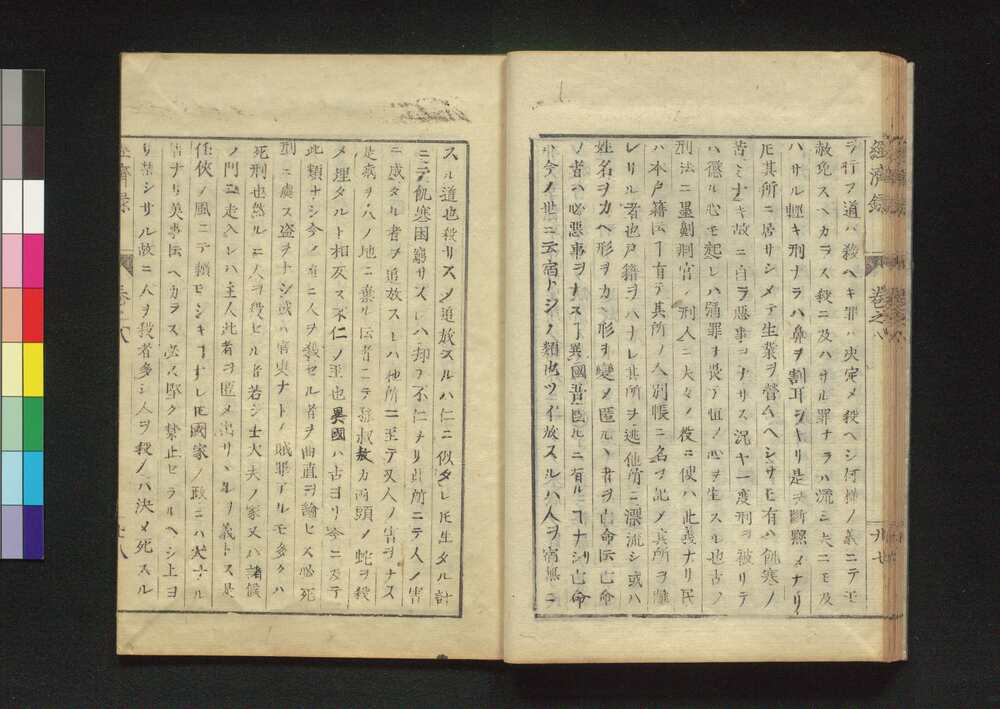 ヲ行フ道ハ殺ヘキ罪ハ決定メ殺ヘシ何様ノ義ニテモ
赦免スヘカラス殺ニ及ハサル罪ナラハ流ニ夫ニモ及
ハサル軽キ刑ナラハ鼻ヲ割耳ヲキリ是ヲ断黥メナリ
圧其所ニ居サシメテ生業ヲ営ムヘシサモ有ハ飢寒ノ
苦ミナキ故ニ自ラ悪事ヲナサス況ヤ一度刑ヲ被リテ
ハ懲ル心モ起レハ罪ヲ畏テ恒ノ心ヲ生スル也古ノ
刑法ニ墨劓剕宮ノ刑人ニ夫々ノ役ニ使ハ此義ナリ民
ハ本戸籍ヿ有テ其所ノ人別帳ニ名ヲ記メ其所ヲ離
レサル者也戸籍ヲハナレ其所ヲ逃他所ニ漂流シ或ハ
姓名ヲカヘ形ヲカヘ形ヲ變メ匿ルヽ者ヲ亡命ト云亡命
ノ者ハ必悪事ヲナスヿ異國吾國ニ有ルヿナシ亡命
今ノ世ニ云宿ナシノ類也追放スルハ人ヲ宿無ニ
經濟錄 巻之八
スル道也殺サスメ追放スルハ仁ニ似タレ圧生タル計
ニテ飢寒困窮サスレハ却テ不仁ナリ此所ニテ人ノ害
ニ成タル者ヲ追放スレハ他所ニ至テ又人ノ害ヲナス
是病ヲ人ノ地ニ棄ル云者ニテ孫叔敖カ両頭ノ蛇ヲ殺
メ埋タルト相反ス不仁ノ至也異國ハ古ヨリ今ニ至テ
此類ナシ今ノ世ニ人ヲ殺セル者ヲ曲直ヲ論セス必死
刑ニ處ス盗ヲナシ或ハ官吏ナトノ賊罪アルモ多クハ
死刑也然ルニ人ヲ殺セル者若シ士大夫ノ家又ハ諸侯
ノ門ニ走入レハ主人此者ヲ匿メ出サヽルヲ義トス是
任侠ノ風ニテ頼モシキヿナレ圧國家ノ政ニハ大ナル
害ナリ美事ト云ヘカラス必ス堅ク禁止セラルヘシ上ヨ
リ禁シサル故ニ人ヲ殺者多シ人ヲ殺ノハ決メ死スル
經濟錄 巻之八